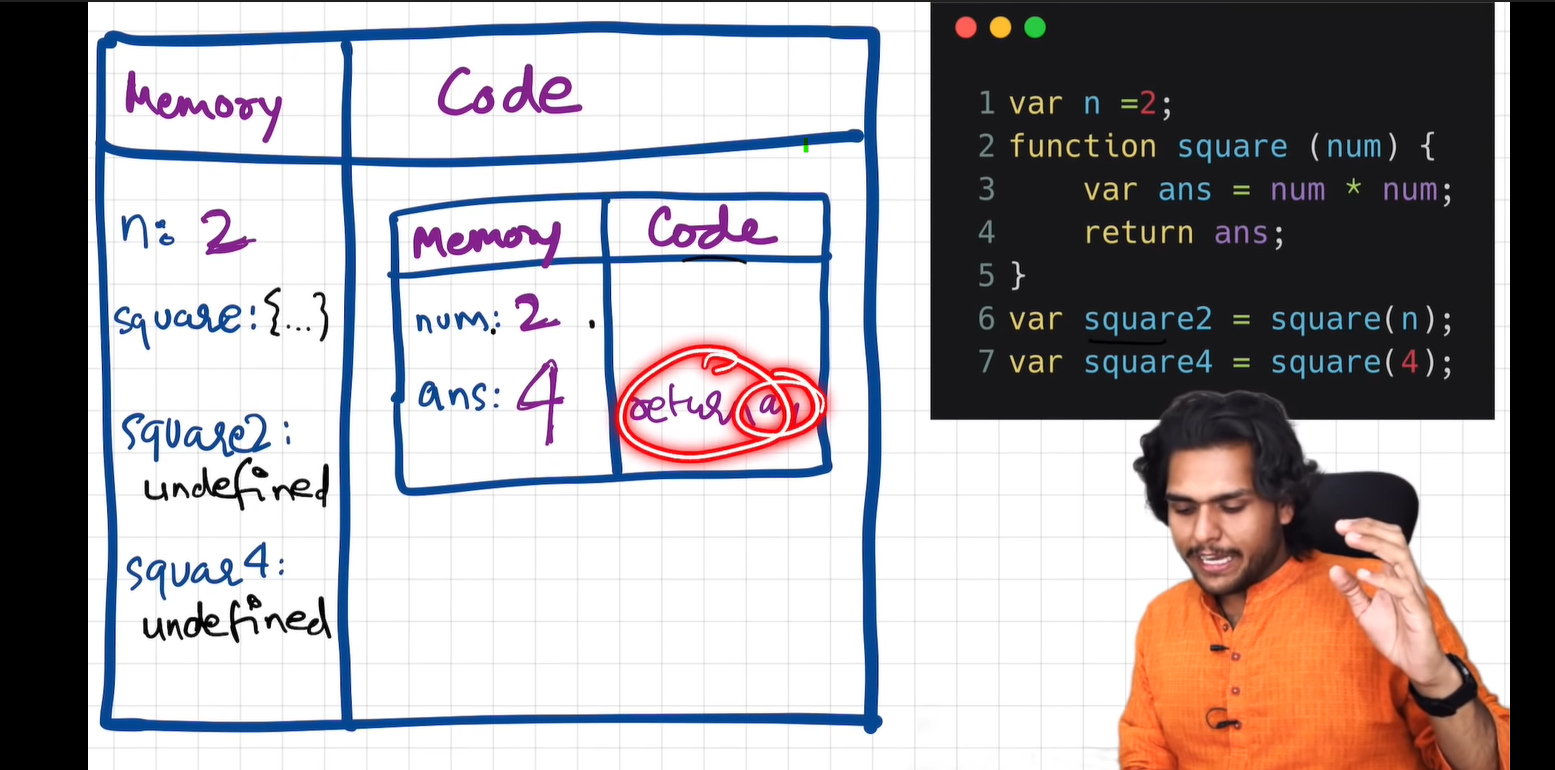 Memory
Code
n: 2
square: {...}
square2:
undefined
squar4:
undefined
Memory
Code
num: 2
ans: 4
return an
1 var n =2;
2 function square (num) {
3 var ans = num * num;
4 return ans;
5 }
6 var square2 = square(n);
7 var square4 = square(4);